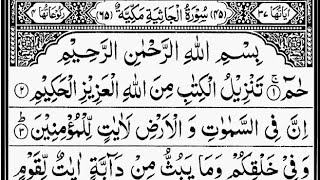 اٰیَاتُهَا ٣٧ (٤٥) سُوْرَةُ الْجَاثِیَةِ مَكِّیَّةٌ (٦٥) رُكُوْعَاتُهَا ٤
بِسْمِ اللّٰهِ الرَّحْمٰنِ الرَّحِیْمِ
حٰمٓ ۚ ﴿١﴾ تَنْزِیْلُ الْكِتٰبِ مِنَ اللّٰهِ الْعَزِیْزِ الْحَكِیْمِ ﴿٢﴾
اِنَّ فِی السَّمٰوٰتِ وَ الْاَرْضِ لَاٰیٰتٍ لِّلْمُؤْمِنِیْنَ ﴿٣﴾
وَفِیْ خَلْقِكُمْ وَمَا یَبُثُّ مِنْ دَآبَّةٍ اٰیٰتٌ لِّقَوْمٍ